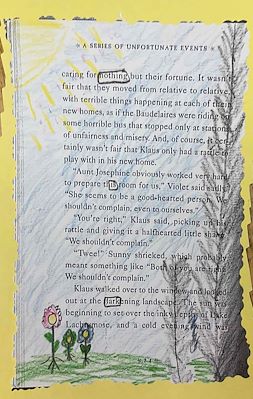 ★ A SERIES OF UNFORTUNATE EVENTS ★
caring for nothing but their fortune. It wasn't
fair that they moved from relative to relative,
with terrible things happening at each of their
new homes, as if the Baudelaires were riding on
some horrible bus that stopped only at stations
of unfairness and misery. And, of course, it cer-
tainly wasn't fair that Klaus only had a rattle to
play with in his new home.
"Aunt Josephine obviously worked very hard
to prepare this room for us," Violet said sadly.
"She seems to be a good-hearted person. We
shouldn't complain, even to ourselves."
"You're right," Klaus said, picking up his
rattle and giving it a halfhearted little shake.
"We shouldn't complain."
"Twee!" Sunny shrieked, which probably
meant something like "Both of you are right.
We shouldn't complain."
Klaus walked over to the window and looked
out at the darkening landscape. The sun was
beginning to set over the inky depths of Lake
Lachrymose, and a cold evening wind was